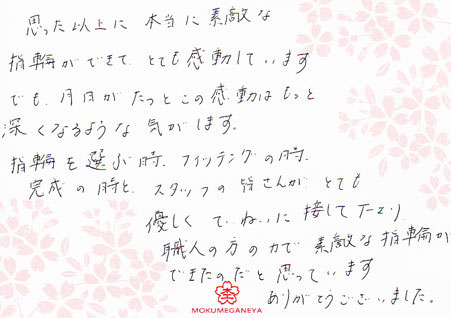 思った以上に 本当に素敵な
指輪ができて、とても感動しています
でも、月日がたつとこの感動はもっと
深くなるような気がします。
指輪を選ぶ時、フィッティングの時、
完成の時と、スタッフの皆さんが、とても
優しくていねいに接して下さり
職人の方の力で 素敵な指輪が
できたのだと思っています
ありがとうございました。
MOKUMEGANEYA